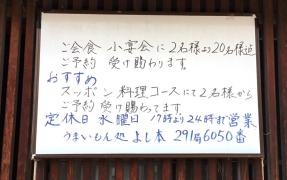 ご会食 小宴会に2名様より20名様迄
ご予約 受け賜わります。
おすすめ
スッポン料理コースにて2名様から
ご予約受け賜わってます
定休日 水曜日 17時より24時迄営業
うまいもん処 よし本 291局6050番